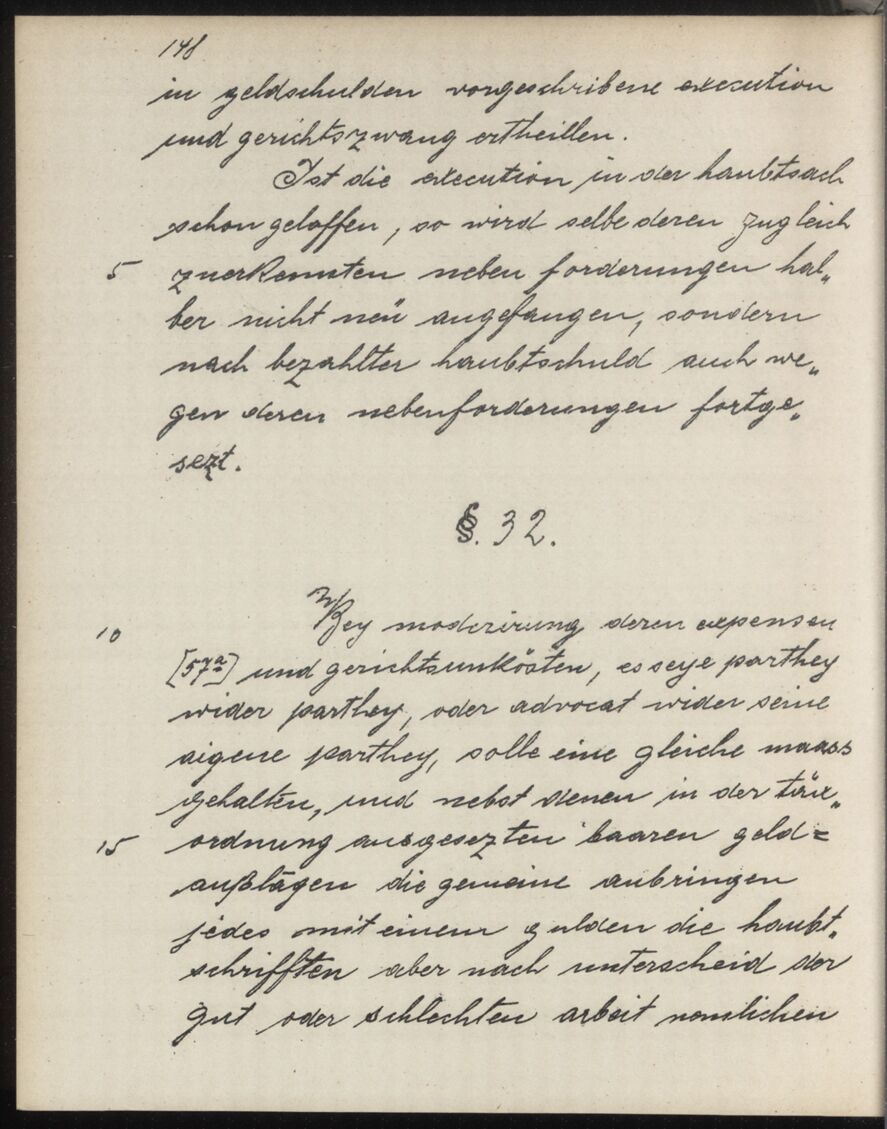 148
in geldschulden vorgeschribene execution
und gerichtszwang ertheillen.
Ist die execution in der haubtsach
schon geloffen, so wird selbe deren zugleich
5 zuerkennten neben forderungen hal„
ber nicht neü angefangen, sondern
nach bezahlter haubtschuld auch we„
gen deren nebenforderungen fortge„
sezt.
§. 32.
10 Bey moderirung deren expensen
[57a] und gerichtsunkösten, es seye parthey
wider parthey, oder advocat wider seine
aigene parthey, solle eine gleiche maass
gehalten, und nebst denen in der tax„
15 ordnung ausgesezten baaren geld=
außlagen die gemeine anbringen
jedes mit einem gulden die haubt„
schrifften aber nach unterscheid der
gut oder schlechten arbeit nemlichen